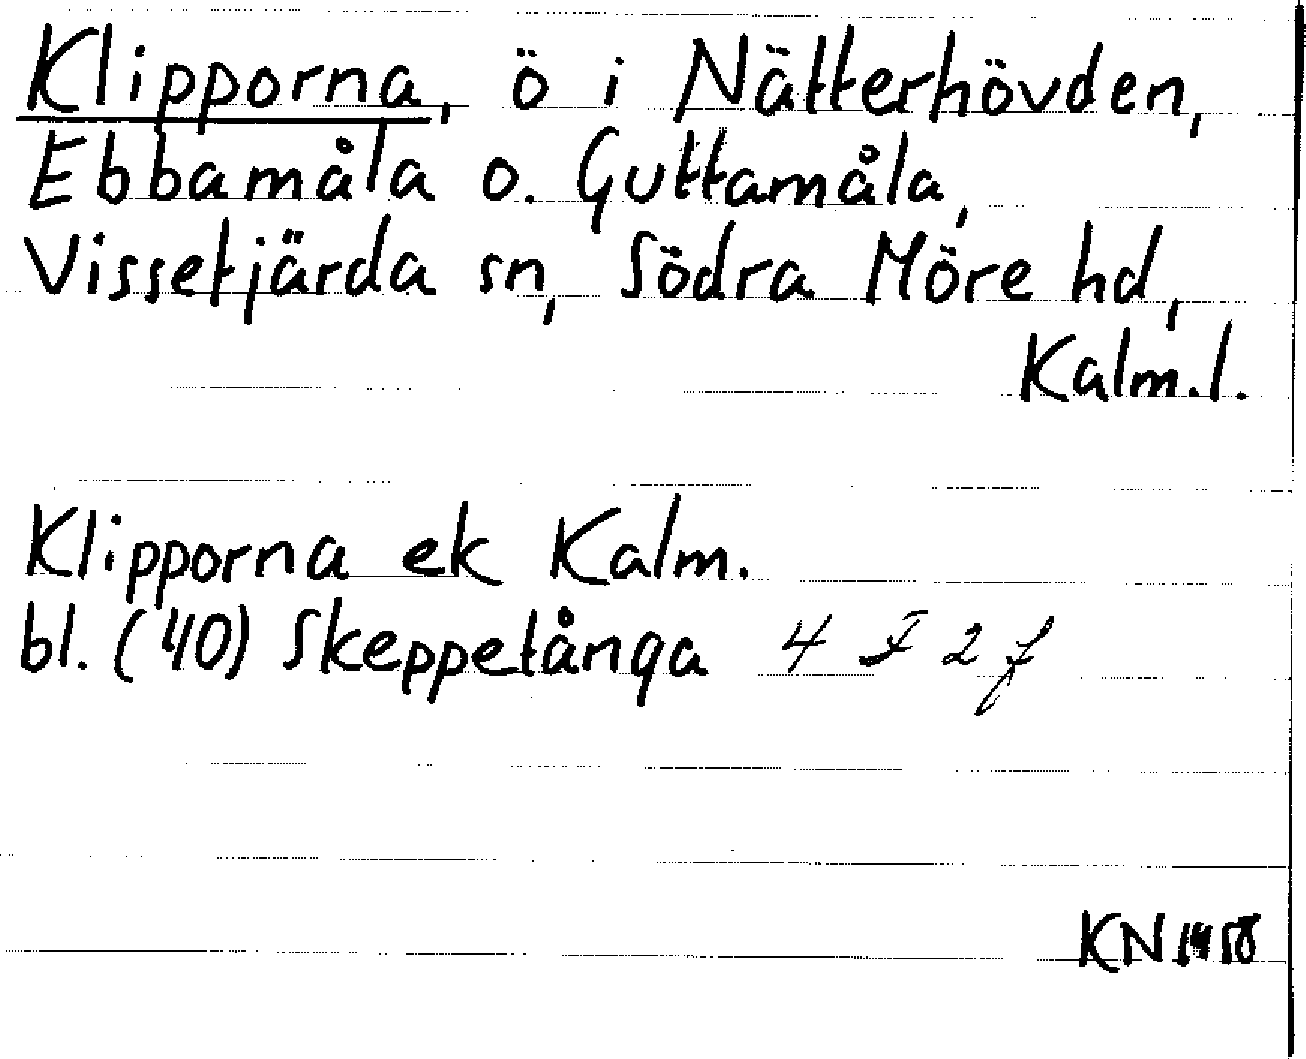 Klipporna, ö i Nätterhövden,
Ebbamåla o. Guttamåla,
Vissefjärda sn, Södra Möre hd,
Kalm.l.
Klipporna ek Kalm.
bl. (40) Skeppetånga 4 F 2 f
KN